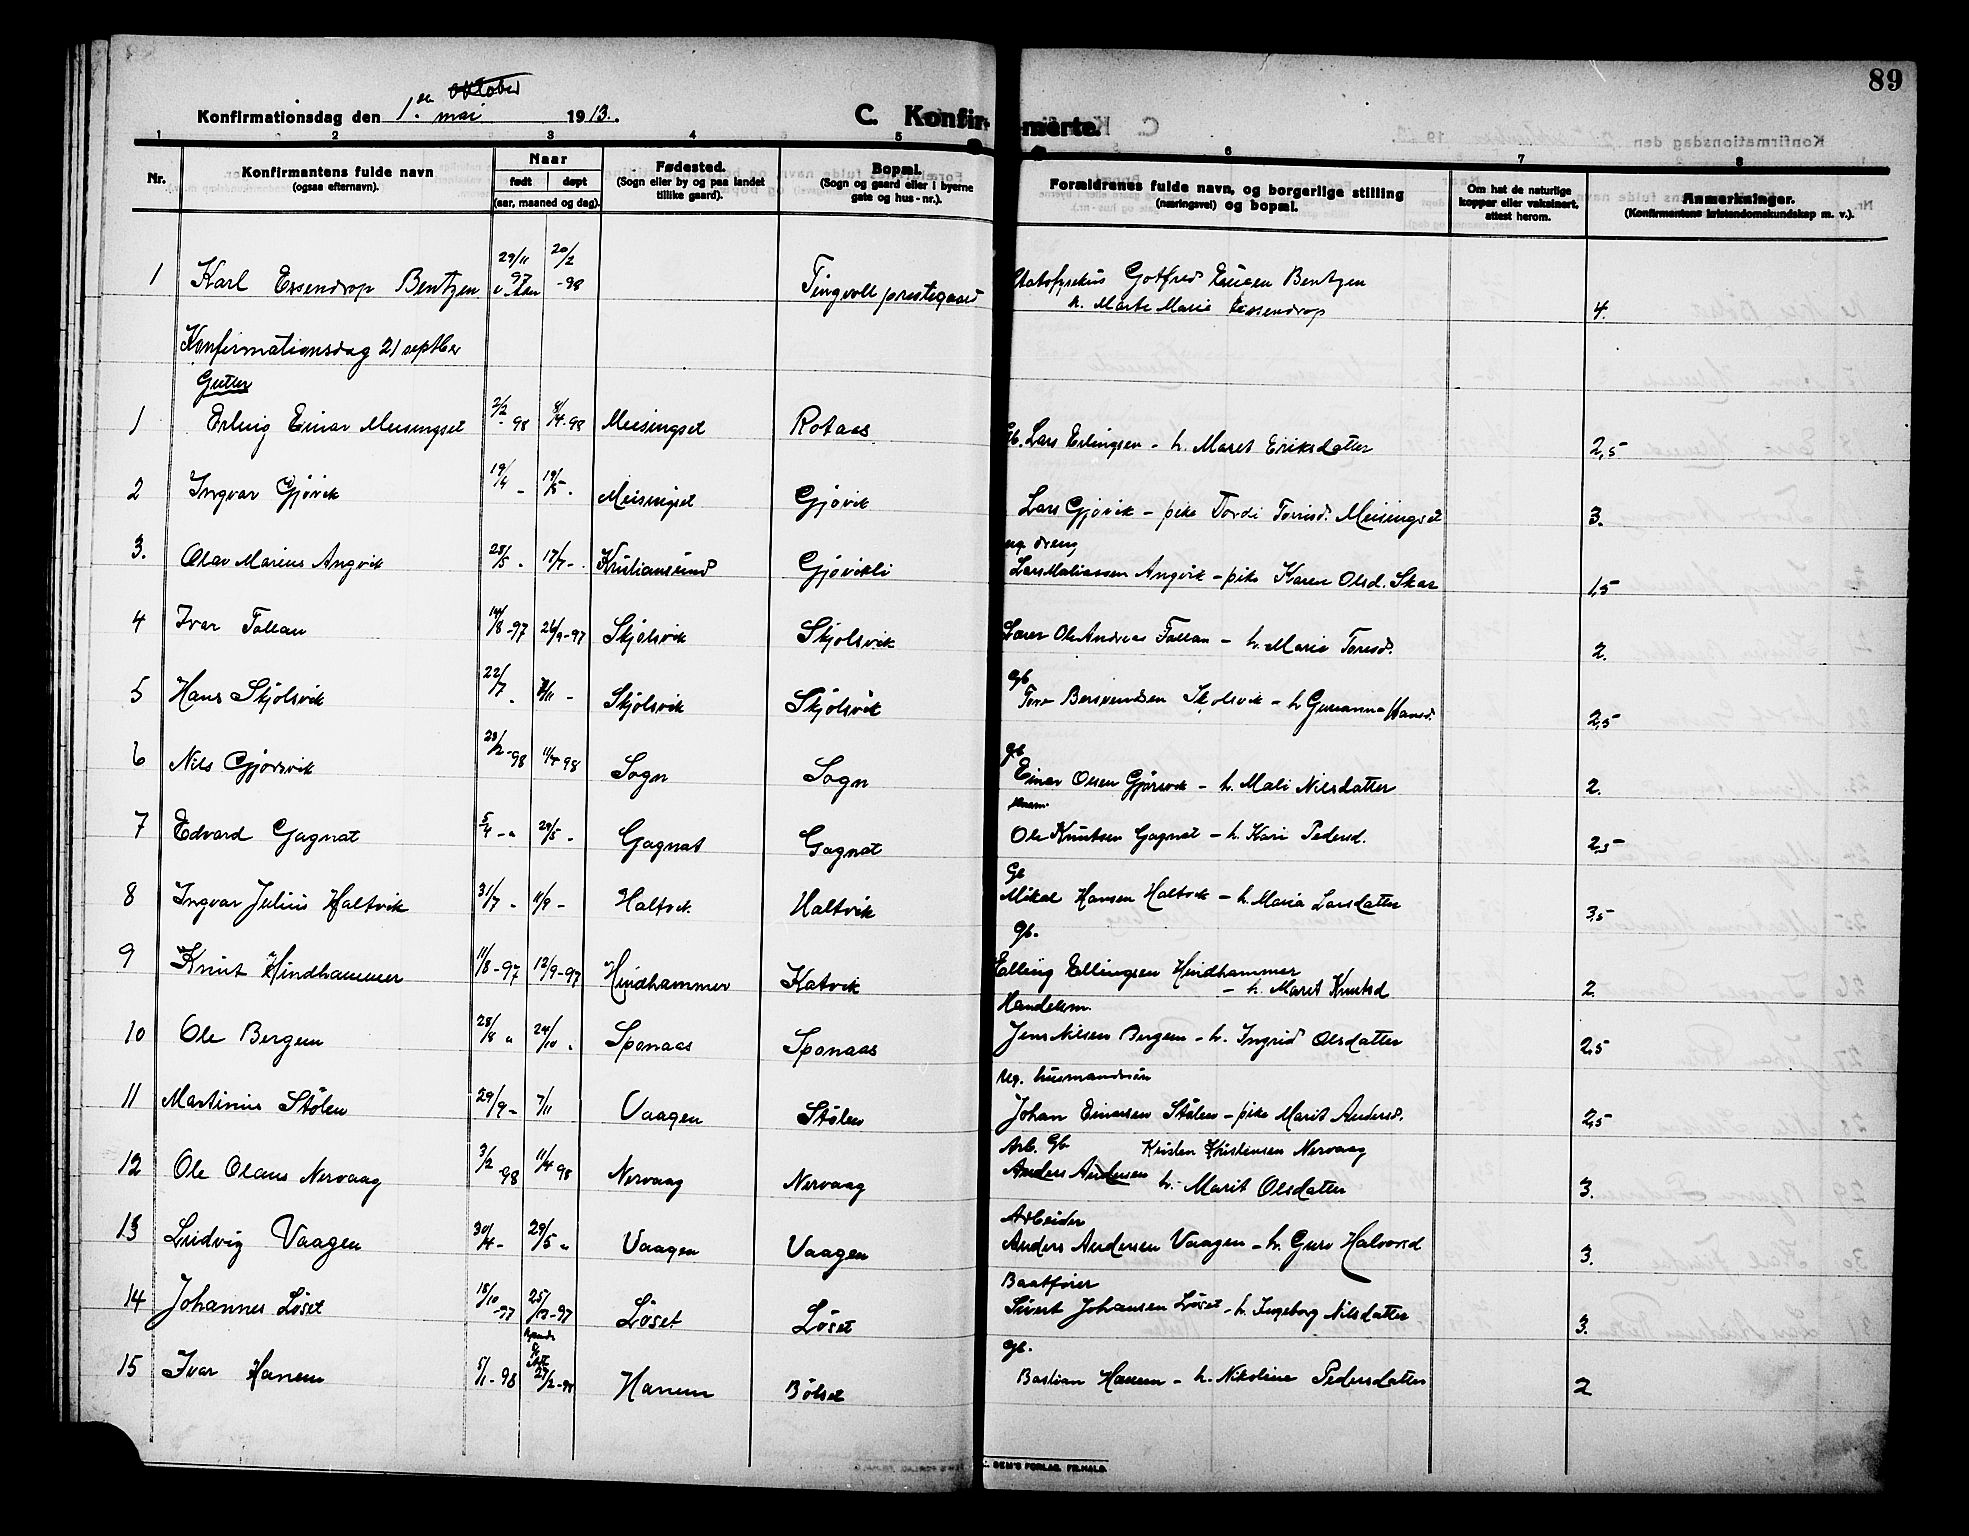 89
Konfirmationsdag den 1. mai 1913.
C. Konfirmerte.
1 2 3 4 5 6 7 8
Nr. Konfirmantens fulde navn (ogsaa efternavn). Naar født døpt (aar, maaned og dag). Fødested. (Sogn eller by og paa landet tillike gaard). Bopæl. (Sogn og gaard eller i byerne gate og hus-nr.). Forældrenes fulde navn, og borgerlige stilling (næringsvei) og bopæl. Om hat de naturlige kopper eller vaksinert, attest herom. Anmerkninger. (Konfirmantens kristendomskundskap m. v.).
1 Karl Essendrop Bentzen 29/11 97 20/2 -98 Tingvoll prestegaard Gotfred Eugen Bentzen
h. Marte Marie Essendrop 4.
Konfirmationsdag 21 septber
Gutter
1 Erling Einar Meisingset 2/2 - 98 8/4 - 98 Meisingset Rotaas Gb. Lars Erlingsen - h. Marit Eriksdatter 2,5
2 Ingvar Gjøvik 19/4 - 19/5 - Meisingset Gjøvik Lars Gjøvik - pike Tordi Torrisd. Meisingset 3.
3. Olav Marius Angvik 28/5 - 17/7 - Kristiansund Gjøvikli ug. dreng
Lars Matiassen Angvik - pike Karen Olsd. Skar 1,5
4 Ivar Tallau 14/8 -97 26/9 -97 Skjølsvik Skjølsvik Lærer Ole Andreas Tallau - h. Marie Toresd. 2.
5 Hans Skjølsvik 22/7 - /11 - Skjølsvik Skjølsvik Gb.
Tore Bersvendsen Skjølsvik - h Gurianna Hansd. 2,5
6 Nils Gjørsvik 28/2 -98 11/4 98 Sogn Sogn Gb
Einar Olsen Gjørsvik - h. Mali Nilsdatter 2.
7 Edvard Gagnat 5/4 - " 29/5 - Gagnat Gagnat Husm.
Ole Knutsen Gagnat - h. Kari Pedersd. 2,5
8 Ingvar Julius Haltvik 31/7 - 11/9 - Haltvik Haltvik Gb
Mikal Hansen Haltvik - h. Maria Larsdatter 3,5
9 Knut Hindhammer 11/8 -97 12/9 -97 Hindhammer Katvik Gb.
Elling Ellingsen Hindhammer
- h. Marit Knutsd 2.
10 Ole Bergem 28/8 " 24/10 " Sponaas Sponaas Handelsm.
Jens Nilsen Bergem - h. Ingrid Olsdatter 2,5
11 Martinus Stølen 29/9 - 7/11 Vaagen Stølen ug. husmandssøn
Johan Einarsen Stølen - pike Marit Andersd. 2,5
12 Ole Olaus Nervaag 3/2 98 11/4 98 Nervaag Nervaag Arb. Gb Kristen Kristensen Nervaag
Anders Andersen h. Marit Olsdatter 3.
13 Ludvig Vaagen 30/4 - 29/5 " Vaagen Vaagen Arbeider
Anders Andersen Vaagen - h. Guro Halvorsd 3.
14 Johannes Løset 18/10 -97 25/12 -97 Løset Løset Baatfører
Sivert Johansen Løset - h. Ingeborg Nilsdatter 3.
15 Ivar Hanem 5/1 - 98 27/2 -98 Hanem Bølset Gb.
Bastian Hanem - h. Nikoline Pedersdatter 2
SEM'S FORLAG. FR.HALD.